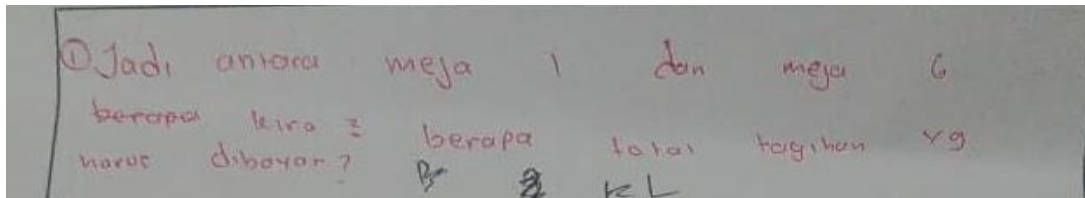 ① Jadi antara meja 1 dan meja 6
berapa kira² berapa total tagihan yg
harus dibayar?
KL